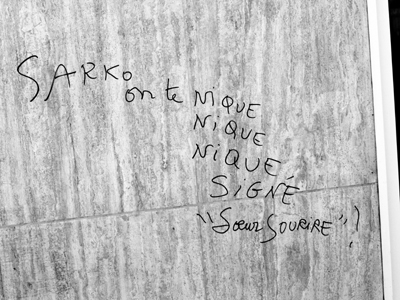 SARKO on te NIQUE
NIQUE
NIQUE
SIGNÉ
"Sœur SOURIRE"?